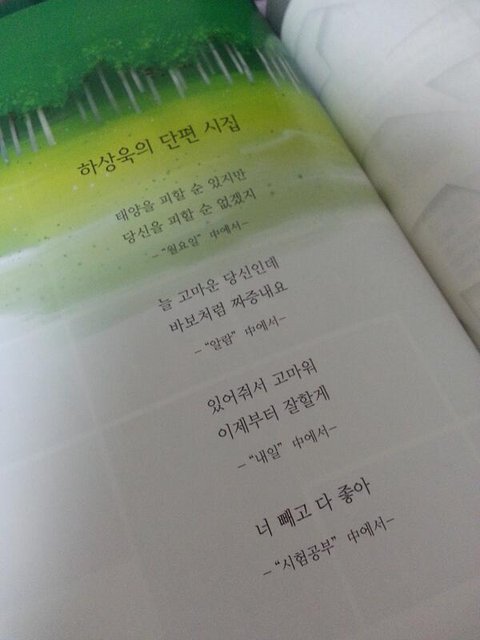 하상욱의 단편 시집
태양을 피할 순 있지만
당신을 피할 순 없겠지
-"월요일" 中에서-
늘 고마운 당신인데
바보처럼 짜증내요
-"알람" 中에서-
있어줘서 고마워
이제부터 잘할게
-"내일" 中에서-
너 빼고 다 좋아
-"시험공부" 中에서-